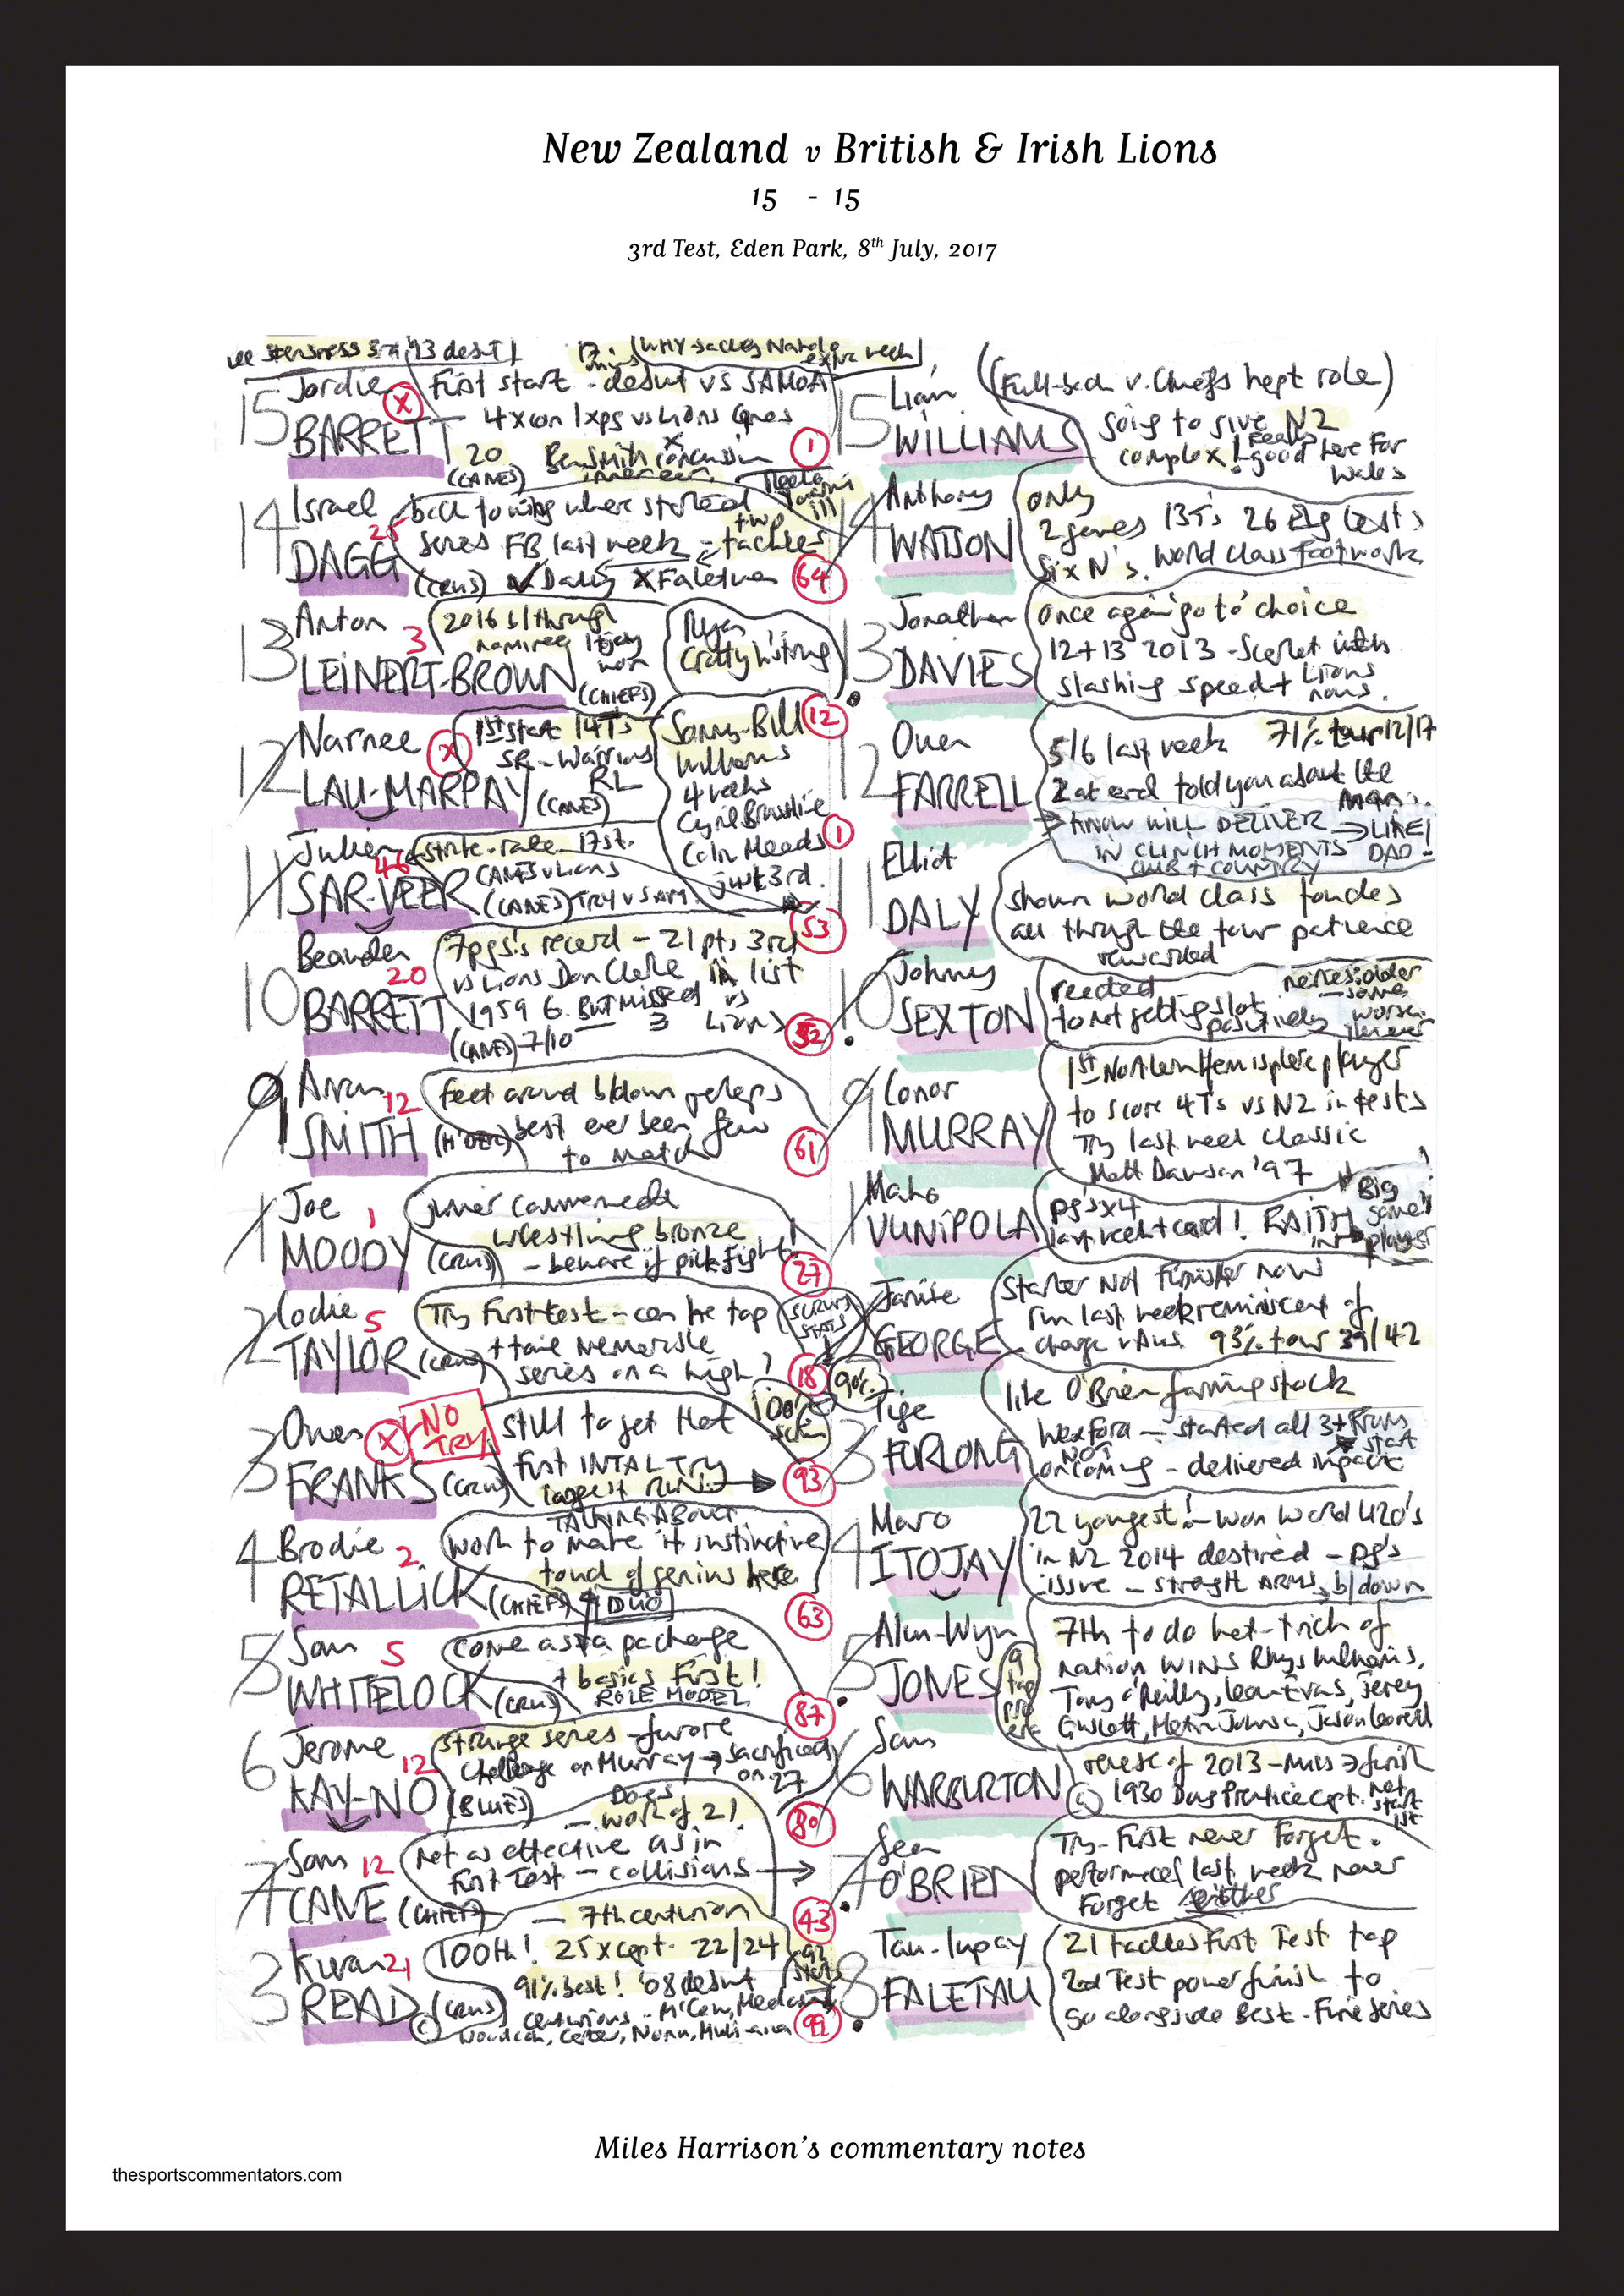 New Zealand v British & Irish Lions
15 - 15
3rd Test, Eden Park, 8th July, 2017
15 Jordie BARRETT (X)
First start - debut vs SAMOA
4xcon 1xpg vs Lions
20 (CANES)
1
14 Israel DAGG 25 (CRUS)
back to wing where started
series FB last week - two tackles
✓ Daly X Faletau
64
13 Anton LEINERT-BROWN 3 (CHIEFS)
2016 b/through
nominee Itojay won
Ryan Crotty h'string
12
12 Narnee LAU-MARPAY (X) (CANES)
1st start 14Ts
SR - Warriors RL
Sonny-Bill Williams
4 weeks
Cyril Brownlie
Colin Meads
just 3rd.
1
11 Julien SAR-VEER 46 (CANES)
strike-rate 17st.
CANES v Lions
TRY v SAM
53
10 Beauden BARRETT 20 (CANES) 7/10
7pg's record - 21 pts 3rd
vs Lions Don Clarke in list
1959 6. But missed 3 vs Lions
52
9 Aron SMITH 12
feet around b/down perhaps
best ever been few
to match
61
1 Joe MOODY 1 (CRUS)
junior Commonwealth
wrestling bronze
- beware if pick fight!
27
2 Codie TAYLOR 5 (CRUS)
Try First test - can he top
+ take memorable
series on a high?
SCRUM STATS
18
3 Owen FRANKS (X) (CRUS)
NO TRY
still to get that
first INTAL TRY
largest RUN
TALKING ABOUT
100% scrum
90%
93
4 Brodie RETALLICK 2 (CHIEFS)
work to make it instinctive
touch of genius here
DUO
63
5 Sam WHITELOCK 5 (CRUS)
come as a package
+ basics First!
ROLE MODEL
87
6 Jerome KAY-NO 12 (BLUES)
strange series - furore
challenge on Murray → sacrificed
on 27
80
7 Sam CANE 12 (CHIEFS)
Does work of 2!
not as effective as in
First Test - collisions →
43
8 Kieran READ 21 (CRUS) (C)
- 7th centurion
100th! 25xcapt. 22/24
91% best! '08 debut
centurions - McCaw, Mealamu,
Woodcock, Carter, Nonu, Muliaina
99
15 Liam WILLIAMS
(Full-back v. Chiefs kept role)
going to give NZ
complex! Really good here for
Wales
14 Anthony WATSON
only
2 games 13Ts 26 Eng tests
Six N's. World Class footwork
13 Jonathan DAVIES
Once again 'go to' choice
12+13 2013 - Scarlet with
slashing speed + Lions
nous.
12 Owen FARRELL
5/6 last week 71% tour 12/17
2 at end told you about the
man.
KNOW WILL DELIVER → LIKE
IN CLINCH MOMENTS DAD!
CLUB + COUNTRY
11 Elliot DALY
shown world class touches
all through the tour patience
rewarded
10 Johny SEXTON
reacted
to not getting slot
positively
9 Conor MURRAY
1st Northern Hemisphere player
to score 4Ts vs NZ in tests
Try last week classic
Matt Dawson '97
1 Mako VUNIPOLA
pg's x4
last week + card! FAITH IN
Big game player
2 Jamie GEORGE
Starter Not Finisher now
run last week reminiscent of
charge v Aus. 93% tour 39/42
3 Tige FURLONG
like O'Brien farming stock
Wexford - started all 3
NOT oncoming - delivered impact
4 Maro ITOJAY
22 youngest! - won World U20's
in NZ 2014 destined - pg's
issue - strength ARMS b/down
5 Alun-Wyn JONES
7th to do hat-trick of
nation WINS Rhys Williams,
Tony O'Reilly, Ieuan Evans, Jeremy
Guscott, Martin Johnson, Jason Leonard
6 Sam WARBURTON (C)
reverse of 2013 - miss → finish
1930 Doug Prentice cpt. not start 1st
7 Sean O'BRIEN
Try - First never forget.
performed last week never
forget another
8 Tau-lupay FALETAU
21 tackles First Test top
2nd Test power finish to
go alongside Best - Fine series
Miles Harrison's commentary notes
thesportscommentators.com